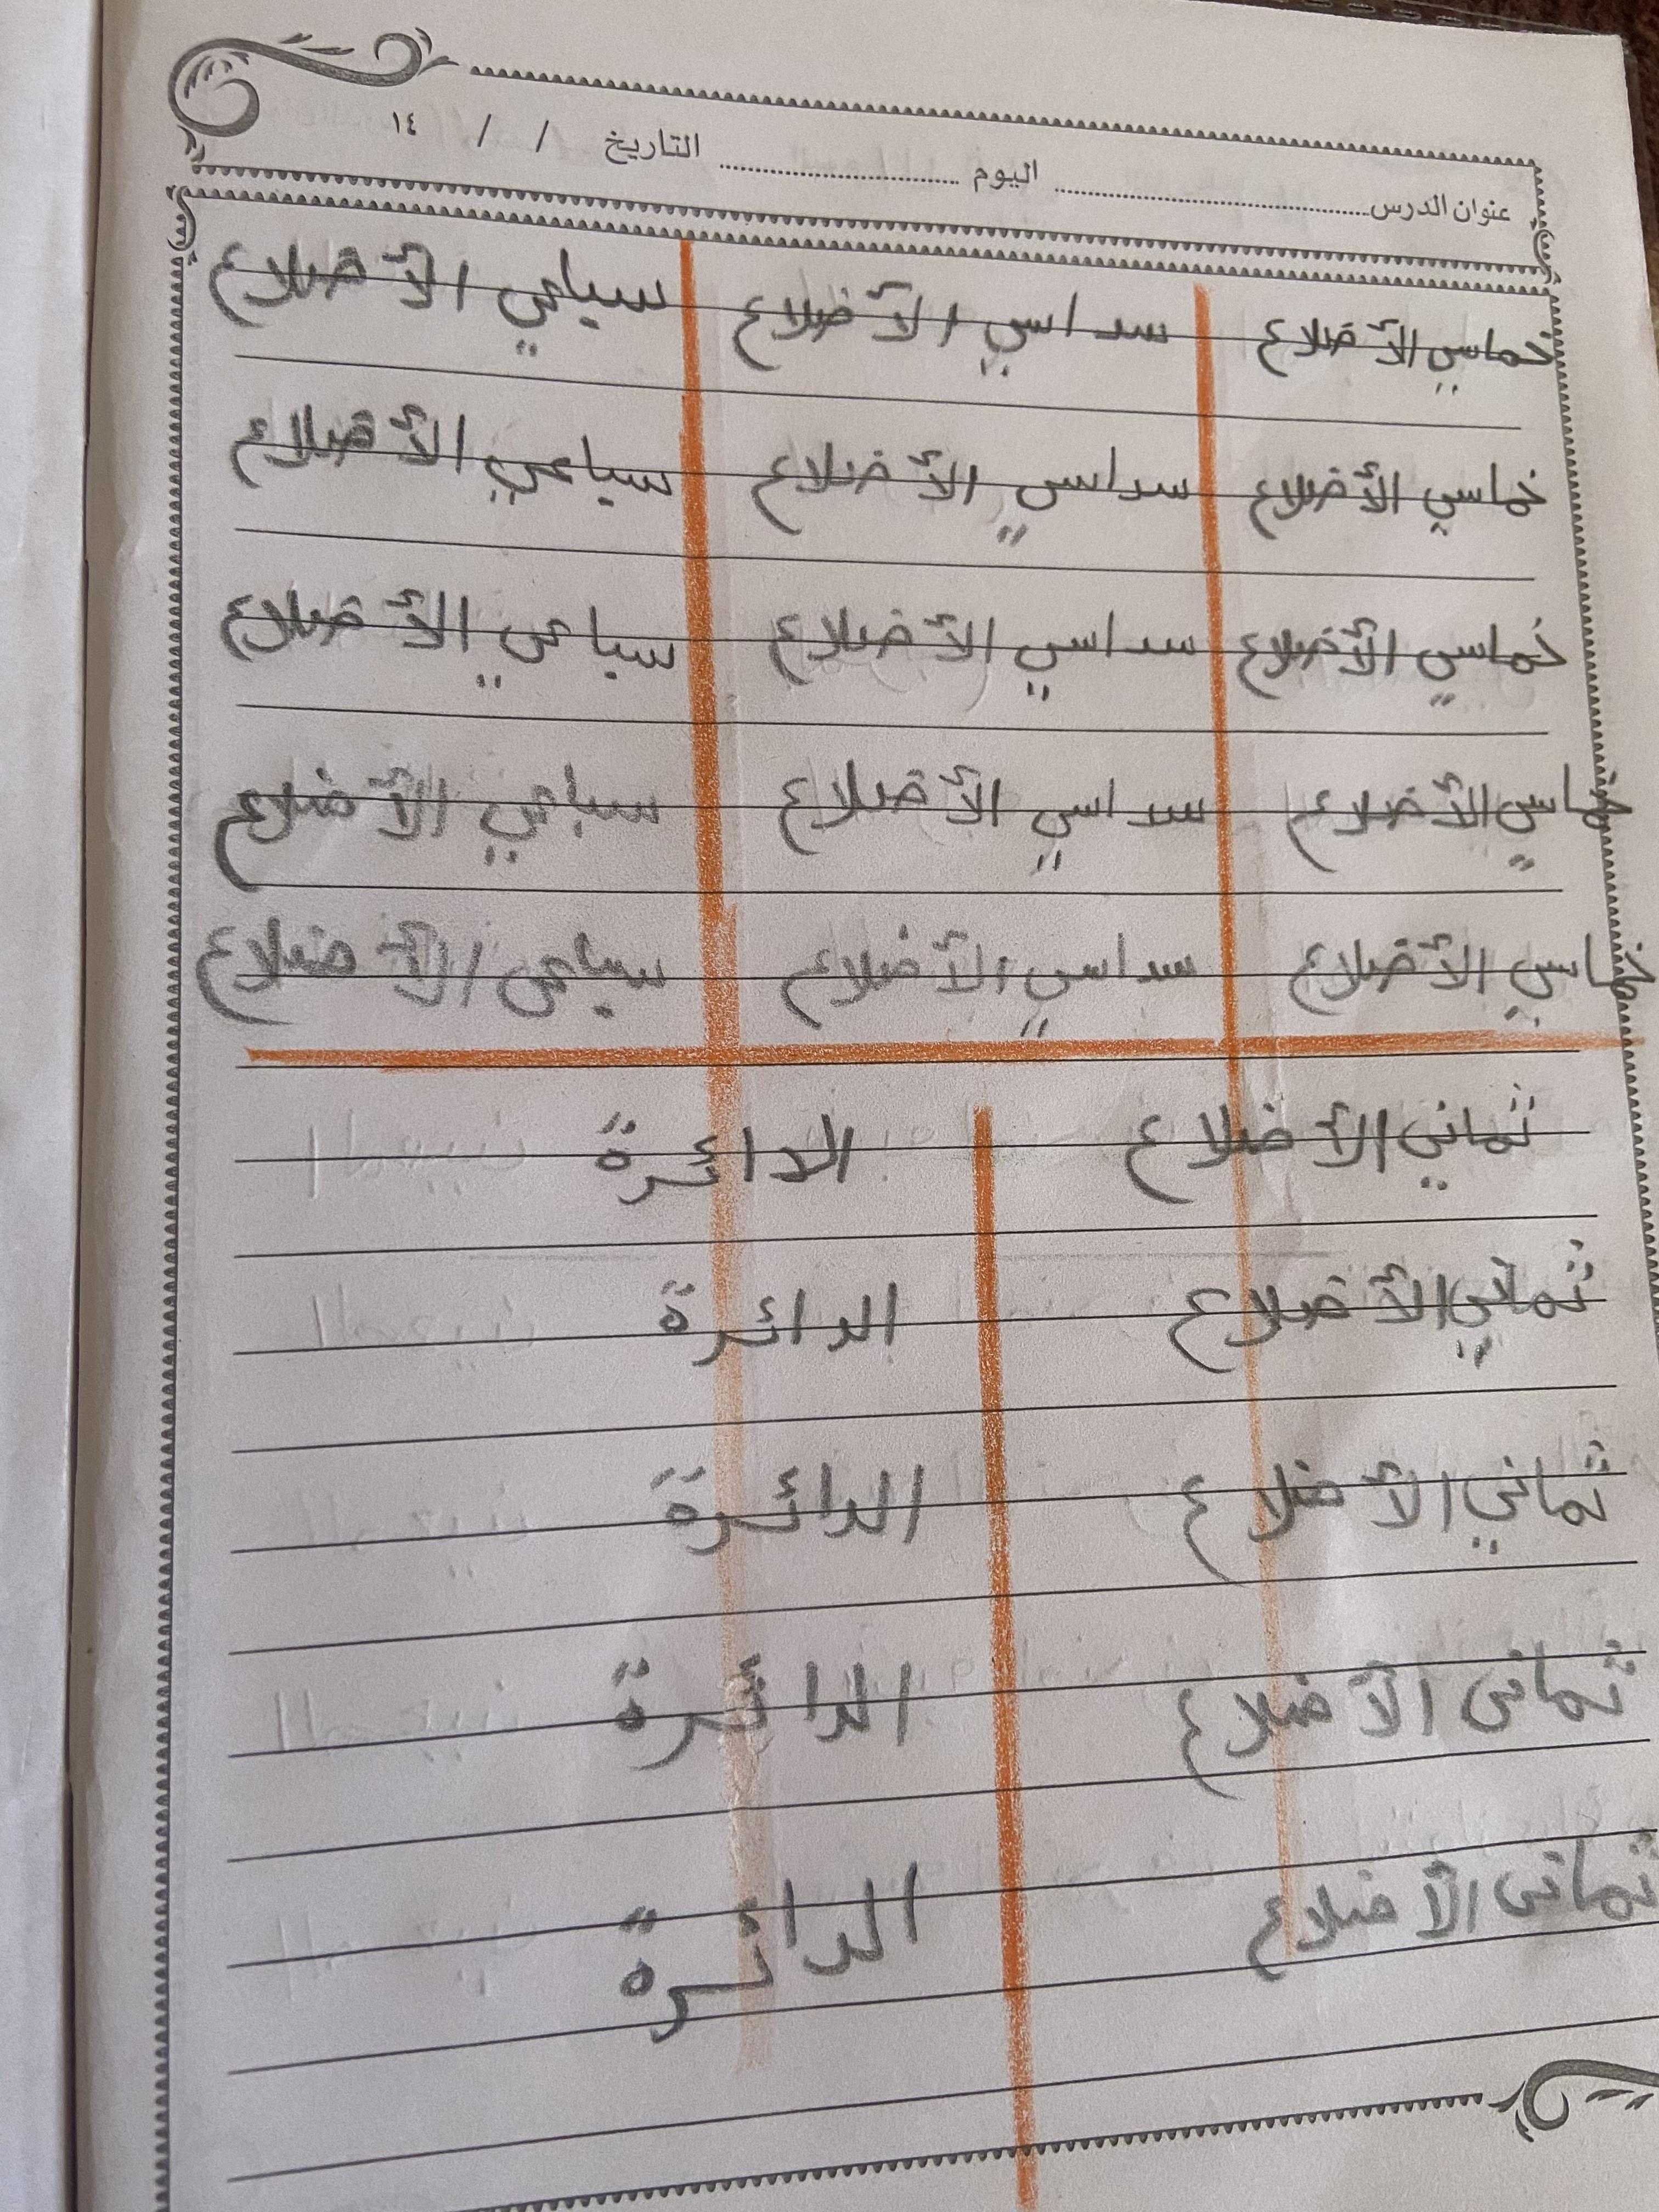 عنوان الدرس اليوم التاريخ / / ١٤
خماسي الأضلاع سداسي الأضلاع سباعي الأضلاع
خماسي الأضلاع سداسي الأضلاع سباعي الأضلاع
خماسي الأضلاع سداسي الأضلاع سباعي الأضلاع
خماسي الأضلاع سداسي الأضلاع سباعي الأضلاع
خماسي الأضلاع سداسي الأضلاع سباعي الأضلاع
ثماني الأضلاع الدائرة
ثماني الأضلاع الدائرة
ثماني الأضلاع الدائرة
ثمانى الأضلاع الدائرة
ثمانى الأضلاع الدائرة